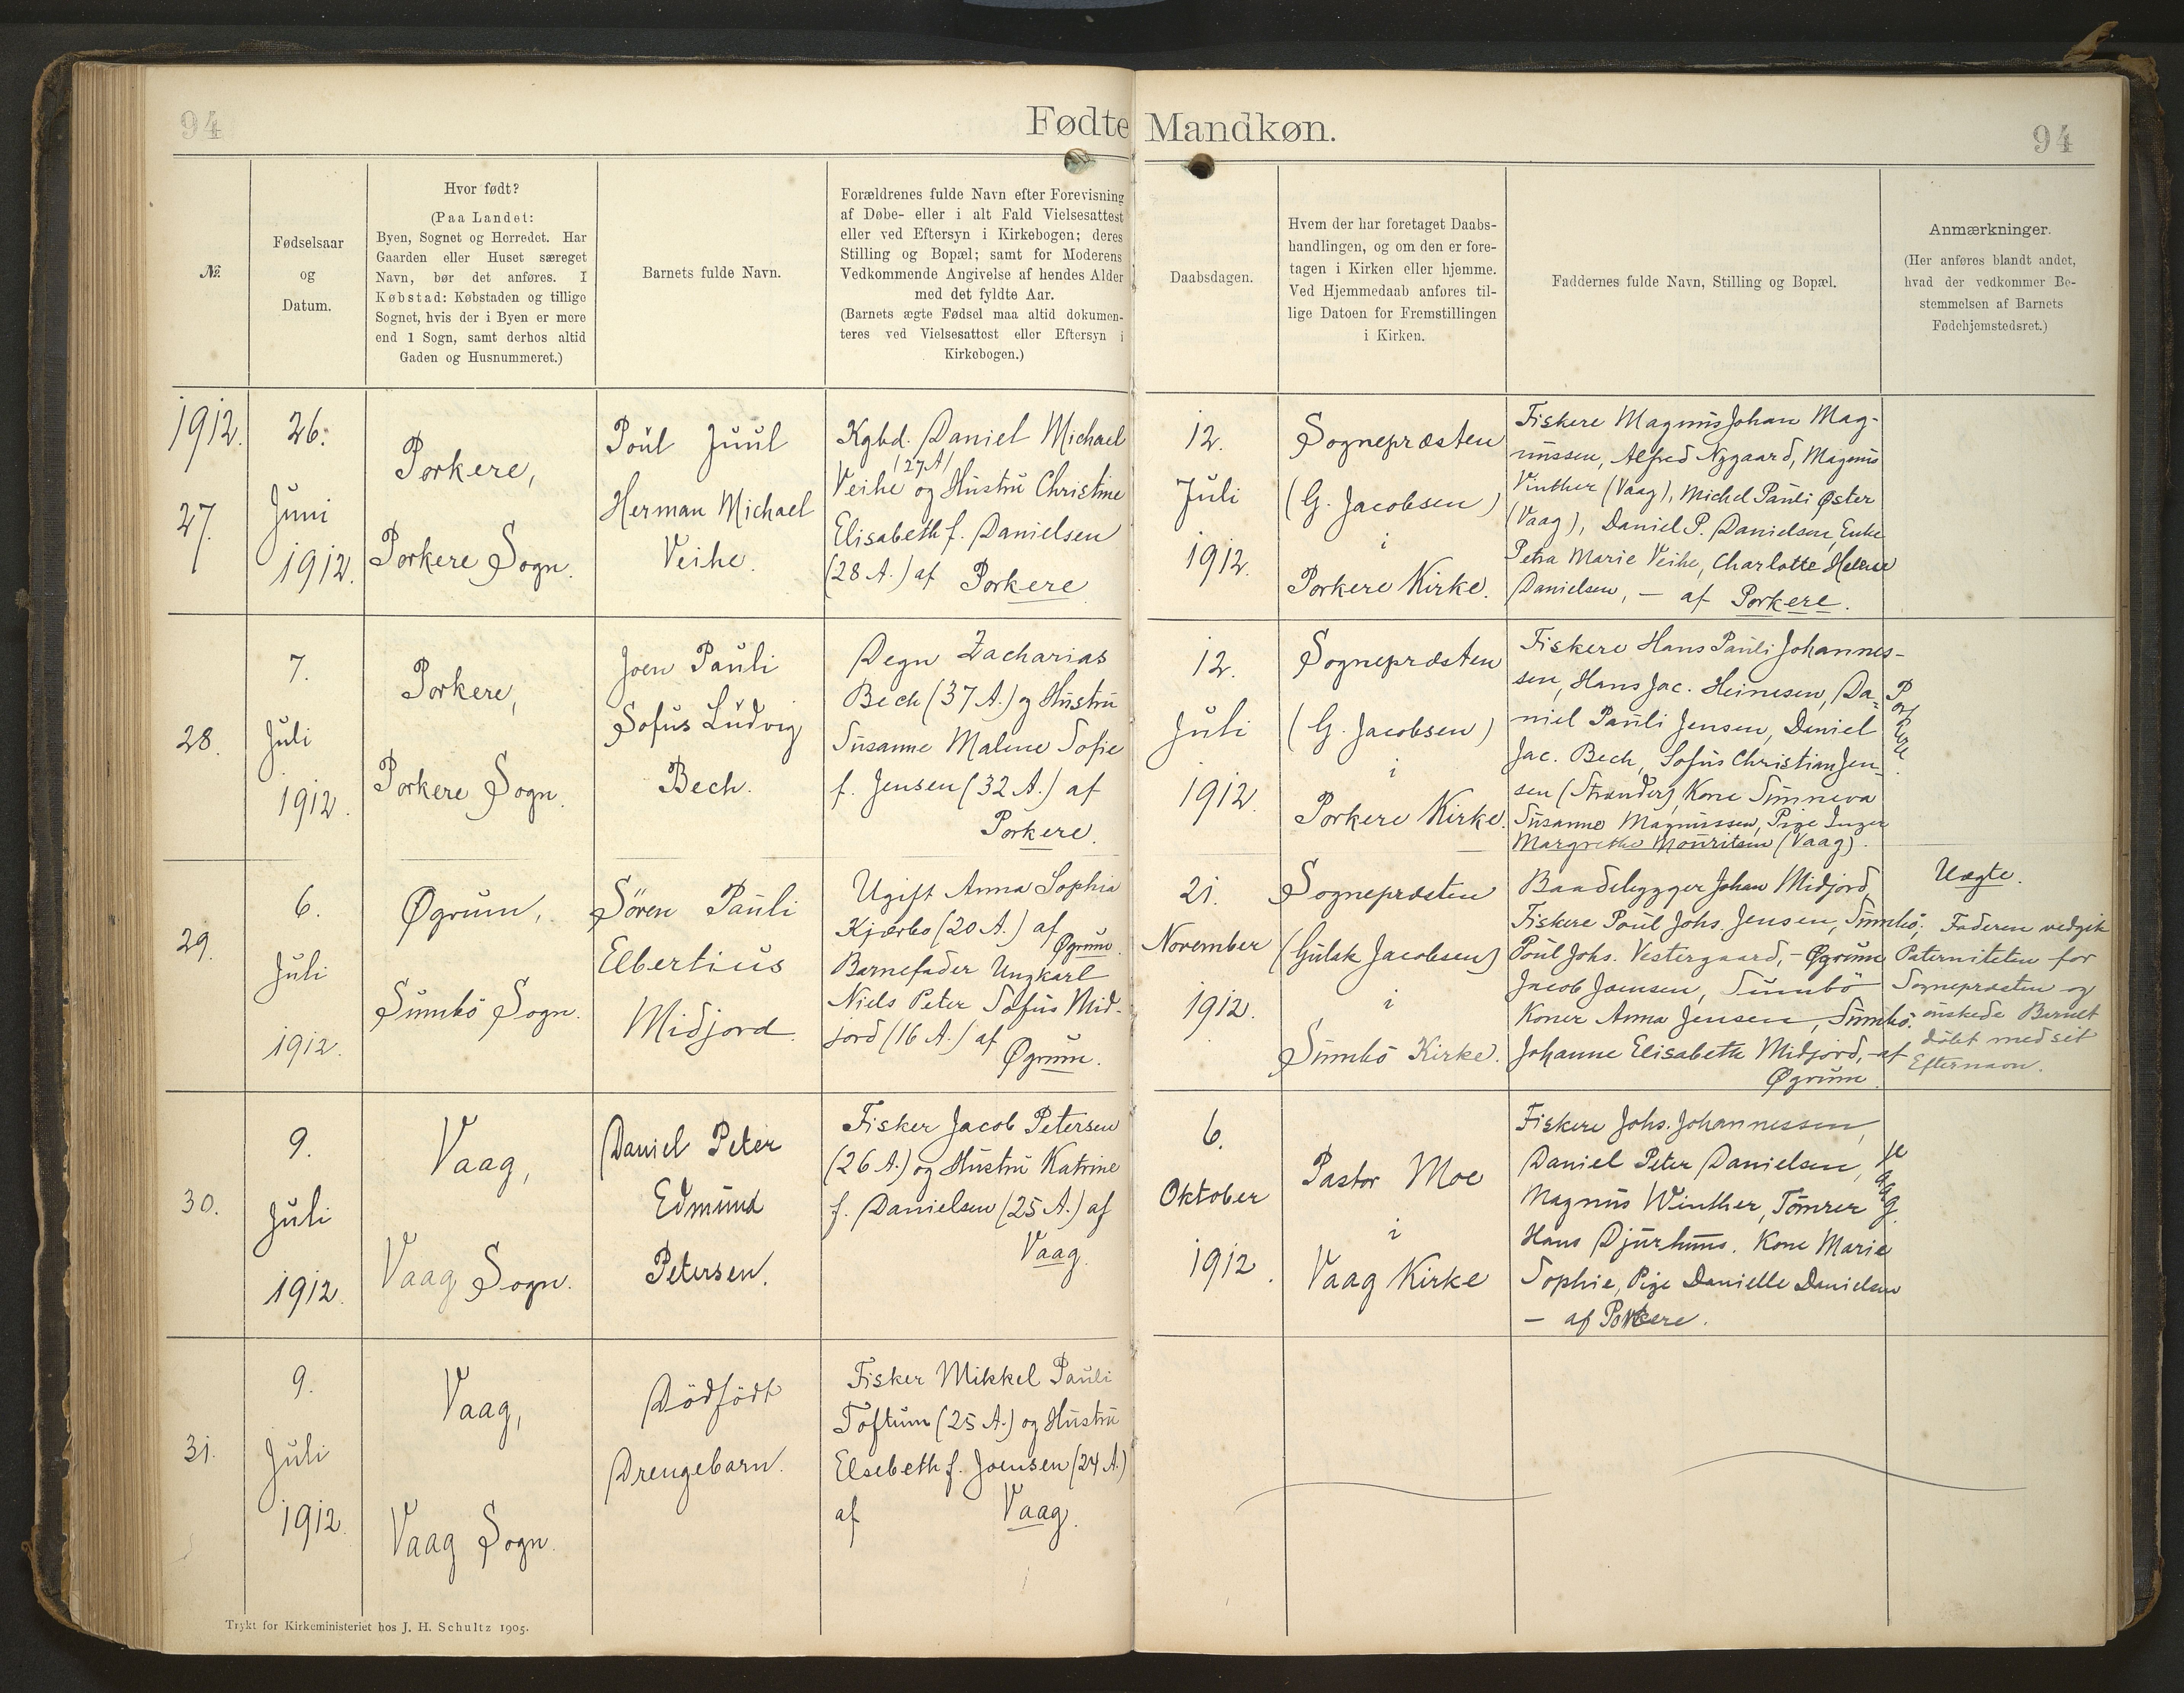 94
Fødte Mandkøn.
94
№
Fødselsaar
og
Datum.
Hvor født?
(Paa Landet:
Byen, Sognet og Herredet. Har
Gaarden eller Huset særeget
Navn, bør det anføres. I
Købstad: Købstaden og tillige
Sognet, hvis der i Byen er mere
end 1 Sogn, samt derhos altid
Gaden og Husnummeret.)
Barnets fulde Navn.
Forældrenes fulde Navn efter Forevisning
af Døbe- eller i alt Fald Vielsesattest
eller ved Eftersyn i Kirkebogen; deres
Stilling og Bopæl; samt for Moderens
Vedkommende Angivelse af hendes Alder
med det fyldte Aar.
(Barnets ægte Fødsel maa altid dokumen-
teres ved Vielsesattest eller Eftersyn i
Kirkebogen.)
Daabsdagen.
Hvem der har foretaget Daabs-
handlingen, og om den er fore-
tagen i Kirken eller hjemme.
Ved Hjemmedaab anføres til-
lige Datoen for Fremstillingen
i Kirken.
Faddernes fulde Navn, Stilling og Bopæl.
Anmærkninger.
(Her anføres blandt andet,
hvad der vedkommer Be-
stemmelsen af Barnets
Fødehjemstedsret.)
1912.
27.
26.
Juni
1912.
Porkere,
Porkere Sogn.
Poul Juul
Herman Michael
Veihe.
Kgbd. Daniel Michael
(27 A)
Veihe og Hustru Christine
Elisabeth f. Danielsen
(28 A.) af Porkere
12.
Juli
1912.
Sognepræsten
(G. Jacobsen)
i
Porkere Kirke.
Fiskere Magnus Johan Mag-
nussen, Alfred Nygaard, Magnus
Vinther (Vaag), Michel Pauli Øster
(Vaag), Daniel P. Danielsen, Enke
Petra Marie Veihe, Charlotte Helene
Danielsen, — af Porkere.
28.
7.
Juli
1912.
Porkere,
Porkere Sogn.
Joen Pauli
Sofus Ludvig
Bech.
Degn Zacharias
Bech (37 A.) og Hustru
Susanne Malene Sofie
f. Jensen (32 A.) af
Porkere.
12.
Juli
1912.
Sognepræsten
(G. Jacobsen)
i
Porkere Kirke.
Fiskere Hans Pauli Johannes-
sen, Hans Jac. Heinesen, Da-
niel Pauli Jensen, Daniel
Jac. Bech, Sofus Christian Jen-
sen (Strander), Kone Sunneva
Susanne Magnussen, Pige Inger
Margrethe Mouritsen (Vaag).
Porkere.
29.
6.
Juli
1912.
Øgrum,
Sumbö Sogn.
Sören Pauli
Elbertius
Midjord.
Ugift Anna Sophia
Kjærbo (20 A.) af
Øgrum.
Barnefader Ungkarl
Niels Peter Sofus Mid-
jord (16 A.) af
Øgrum.
21.
November
1912.
Sognepræsten
(Gulak Jacobsen)
i
Sumbö Kirke.
Baadebygger Johan Midjord,
Fiskere Poul Johs. Jensen, Sumbö;
Poul Johs. Vestergaard, - Øgrum
Jacob Joensen, Sumbö
Koner Anna Jensen, Sumbö.
Johanne Elisabeth Midjord, - af
Øgrum
Uægte.
Faderen vedgik
Paterniteten for
Sognepræsten og
ønskede Barnet
döbt med sit
Efternavn.
30.
9.
Juli
1912.
Vaag,
Vaag Sogn.
Daniel Peter
Edmund
Petersen.
Fisker Jacob Petersen
(26 A.) og Hustru Katrine
f. Danielsen (25 A.) af
Vaag.
6.
Oktober
1912.
Pastor Moe
i
Vaag Kirke
Fiskere Johs. Johannessen,
Daniel Peter Danielsen,
Magnus Winther, Tömrer
Hans Djurhuus. Kone Marie
Sophie, Pige Danielle Danielsen
— af Porkere.
Vaag.
31.
9.
Juli
1912.
Vaag,
Vaag Sogn.
Dödfödt
Drengebarn.
Fisker Mikkel Pauli
Toftum (25 A.) og Hustru
Elsebeth f. Joensen (24 A.)
af Vaag.
Trykt for Kirkeministeriet hos J. H. Schultz 1905.